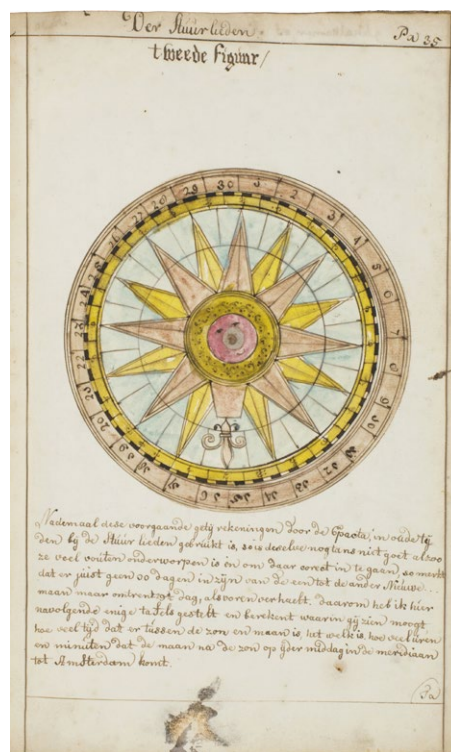 Der Stuurlieden. Pa 35
tweede figuur/
29 30 1 2 3 4 5 6 7 8 9
Nademaal dese voorgaande getij rekeningen door de Epacta, in oude tij
den bij de Stuur lieden gebruikt is, so is deselve nogtans niet goet alsoo
ze veel fouten onderworpen is en om daar corest in te gaan, so merkt
dat er juist geen 30 dagen in zijn van de een tot de ander Nieuwe
maan maar omtrent dag, als voren verhaelt. daarom heb ik hier
navolgende enige tafels gestelt en berekent waarin gij zien moogt
hoe veel tijd dat er tussen de zon en maan is, het welk is, hoe veel uren
en minuten dat de maan na de zon op ijder middag in de meridiaan
tot Amsterdam komt.